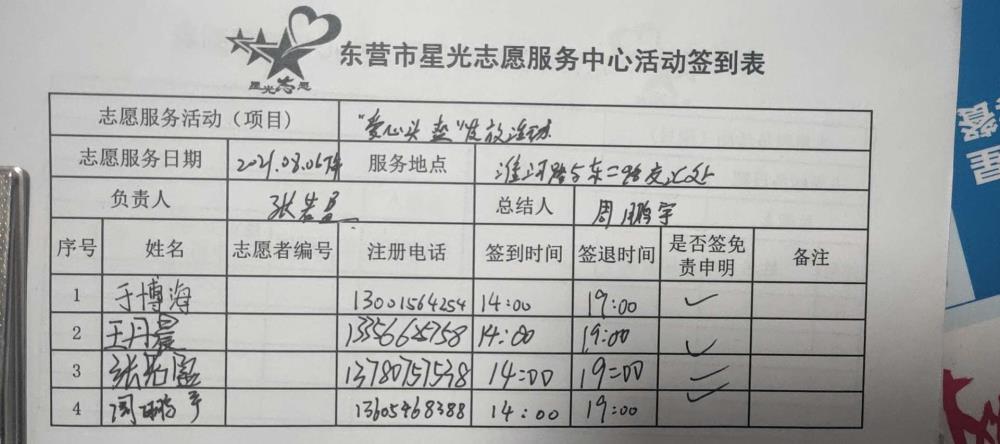 东营市星光志愿服务中心活动签到表
星光志愿
志愿服务活动（项目） "爱心头盔"发放活动
志愿服务日期 2021.08.06 服务地点 淮河路与东二路交汇处
负责人 总结人 周鹏宇
序号 姓名 志愿者编号 注册电话 签到时间 签退时间 是否签免责申明 备注
1 于博海 13001564254 14:00 19:00 ✓
2 王丹晨 13356625758 14:00 19:00 ✓
3 13780757538 14:00 19:00 ✓
4 周鹏宇 13605468388 14:00 19:00 ✓
星
餐